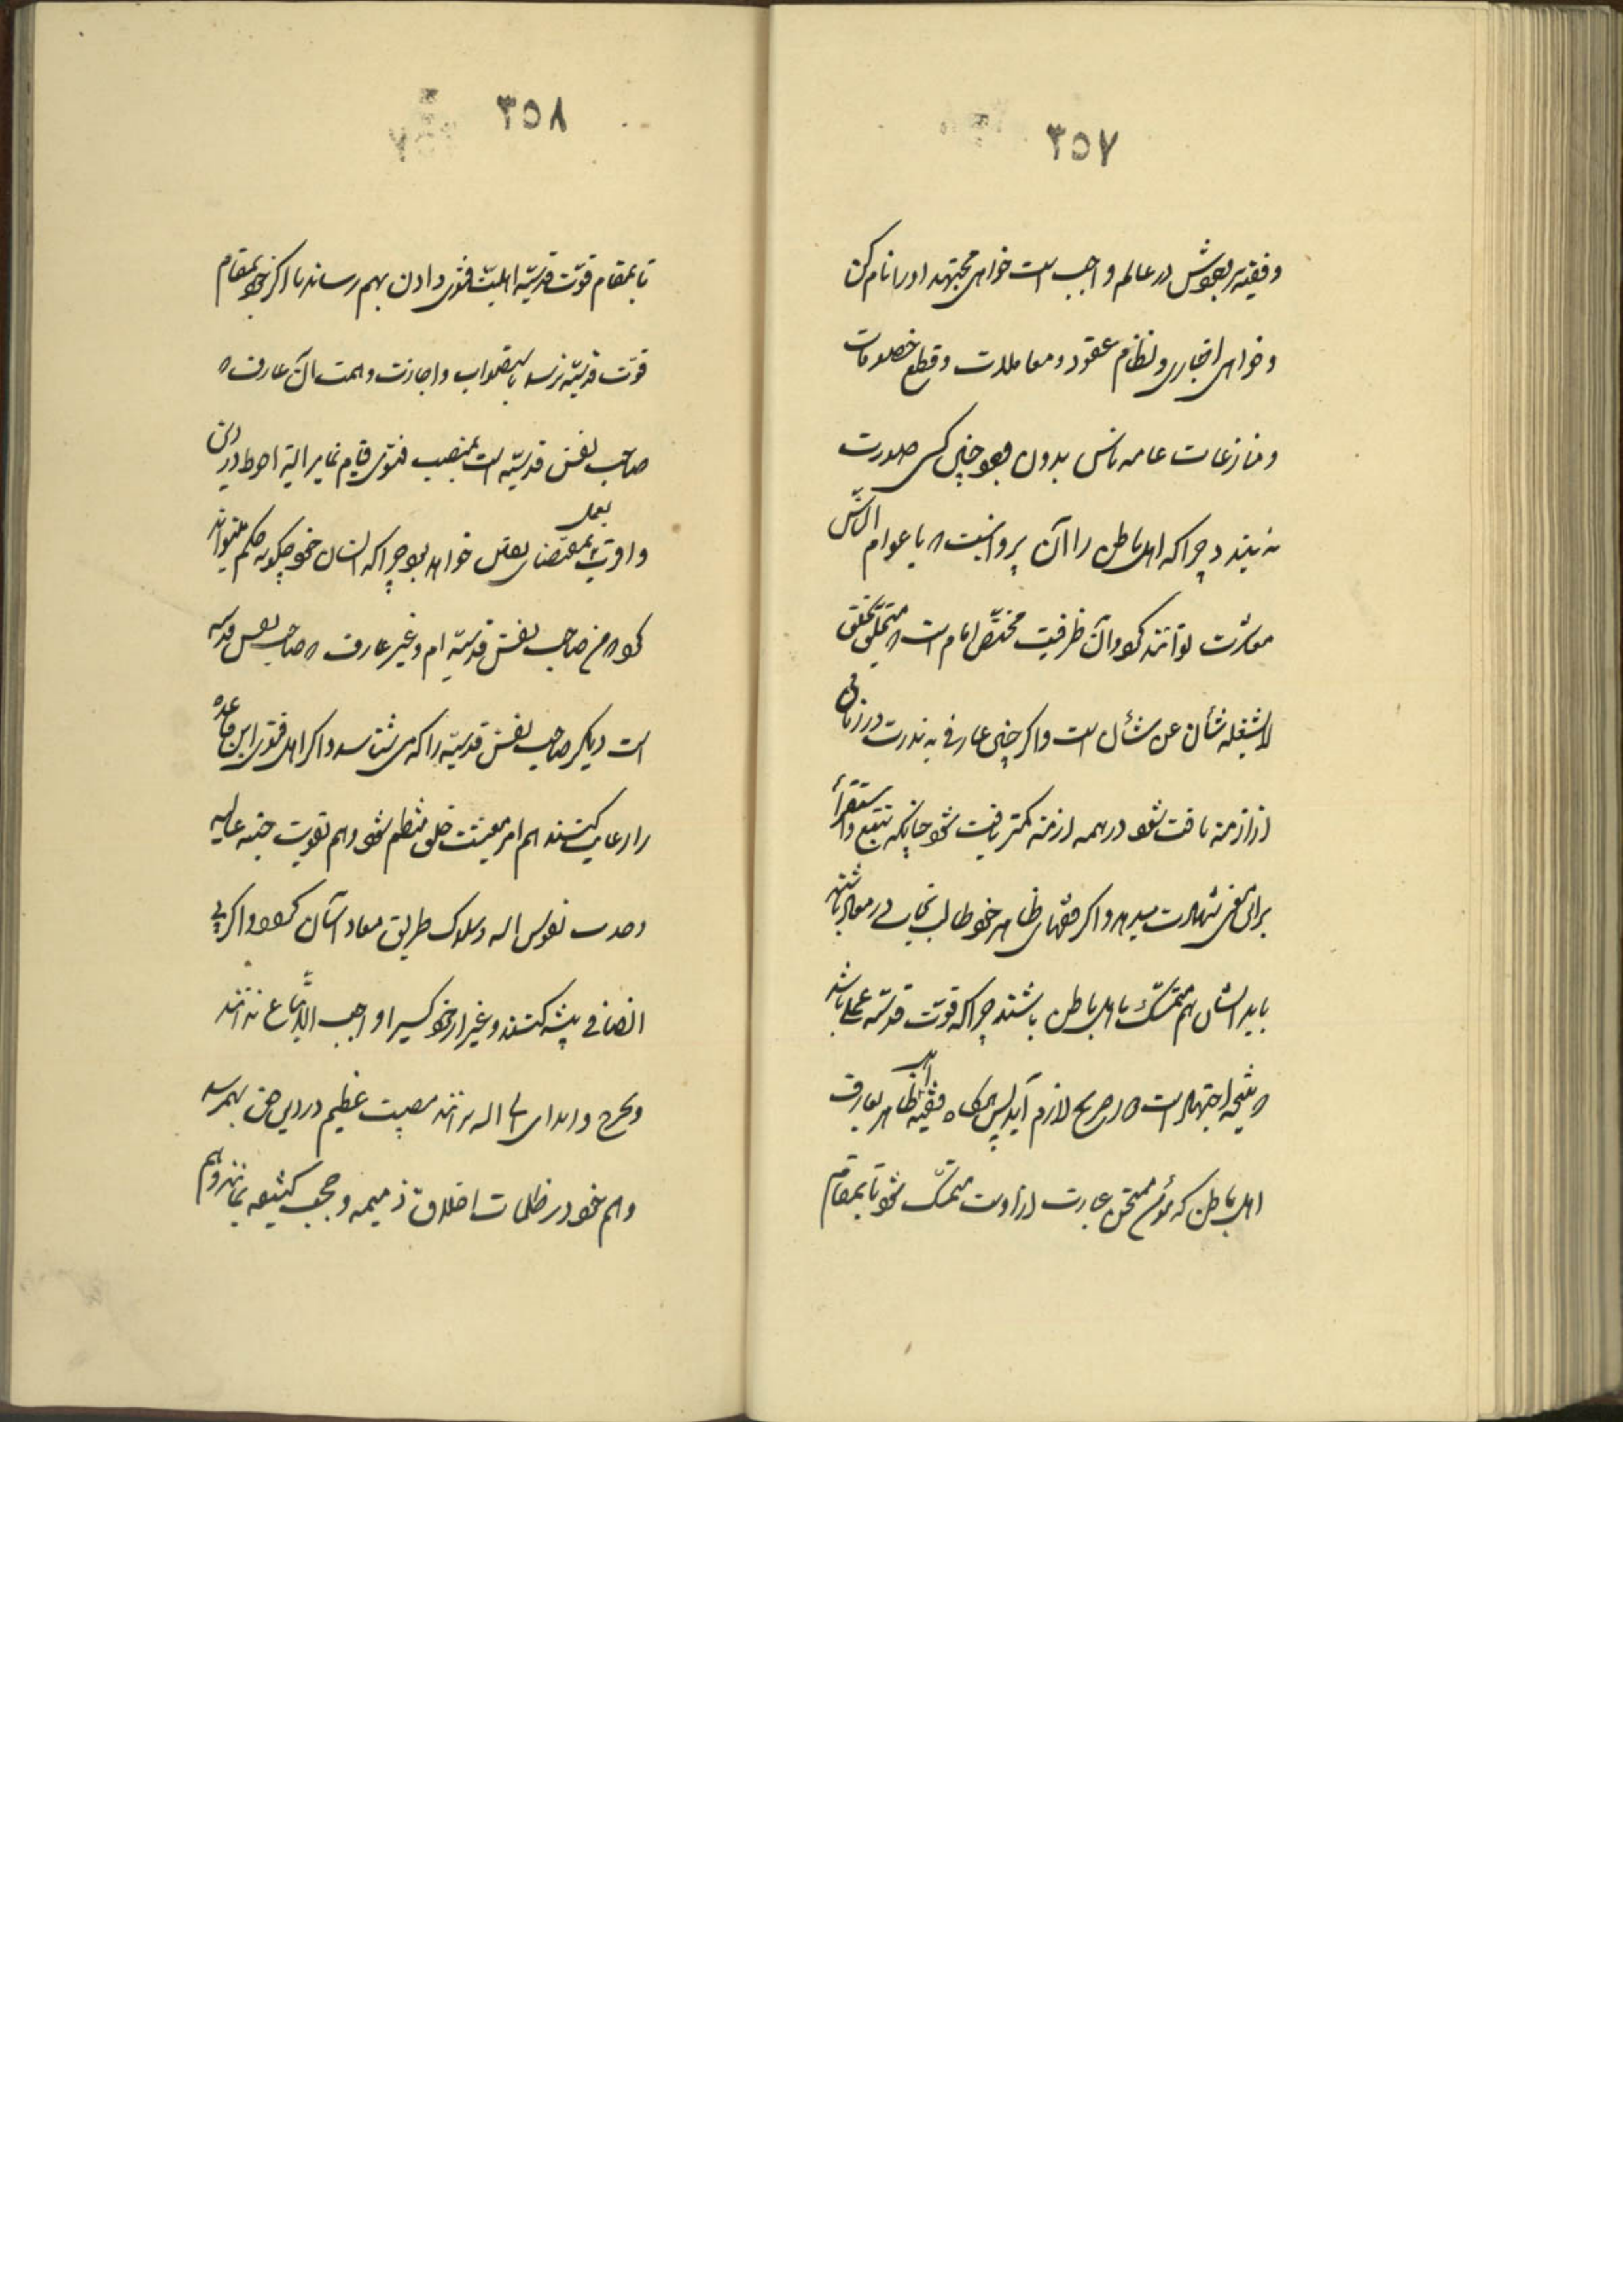 ٣٥٧
وفقیه بر وجودش در عالم واجب است خواهی مجتهد او را نام کن
وخواهی اخباری ونظام عقود ومعاملات وقطع خصومات
ومنازعات عامه ناس بدون وجود چنین کسی صورت
نه بندد چراکه اهل باطن را آن پروا نیست که با عوام الناس
معاشرت توانند کرد وآن ظرفیت مختص امام است که متخلق بخلق
لا یشغله شأن عن شأن است واکر چنین عارفی به ندرت در زمانی
از ازمنه یافت شود در همه ازمنه کمتر یافت شود چنانکه تتبع واستقراء
براین معنی شهادت میدهد واکر فقهای ظاهر خود طالب نجات در معاد باشند
باید ایشان هم متمسک باهل باطن باشند چراکه قوت قدسیه عملی باشد
که نتیجه اجتهاد است لازم آید پس همکاه فقیه اهل ظاهر بعارف
اهل باطن که مؤمن ممتحن عبارت از اوست متمسک شود تا بمقام
٣٥٨
تا بمقام قوت قدسیه اهلیت فتوی دادن بهم رساند یا اکر خود بمقام
قوت قدسیه نرسد باستصواب واجازت وهمت آن عارف که
صاحب نفس قدسیه است بمنصب فتوی قیام نماید البته احوط در دین
واقرب بمقتضای عقل خواهد بود چراکه انسان خود چکونه حکم میتواند
کرد که من صاحب نفس قدسیه ام وغیر عارف که صاحب نفس قدسیه
است دیکر صاحب نفس قدسیه را که می شناسد واکر اهل فتوی این قاعده
را رعایت کنند هم امر معیشت خلق منتظم شود وهم تقویت جنبه عالیه
وحدت نفوس الهیه وسلوک طریق معاد آسان کردد واکر بی
انصافی پیشه کنند وغیر از خود کسی را واجب الاتباع ندانند
وبجرح وایذای اهل اله برآنند مصیبت عظیم در دین حق بهم رسد
وهم خود در ظلمات اخلاق ذمیمه وحجب کثیفه بمانند وهم